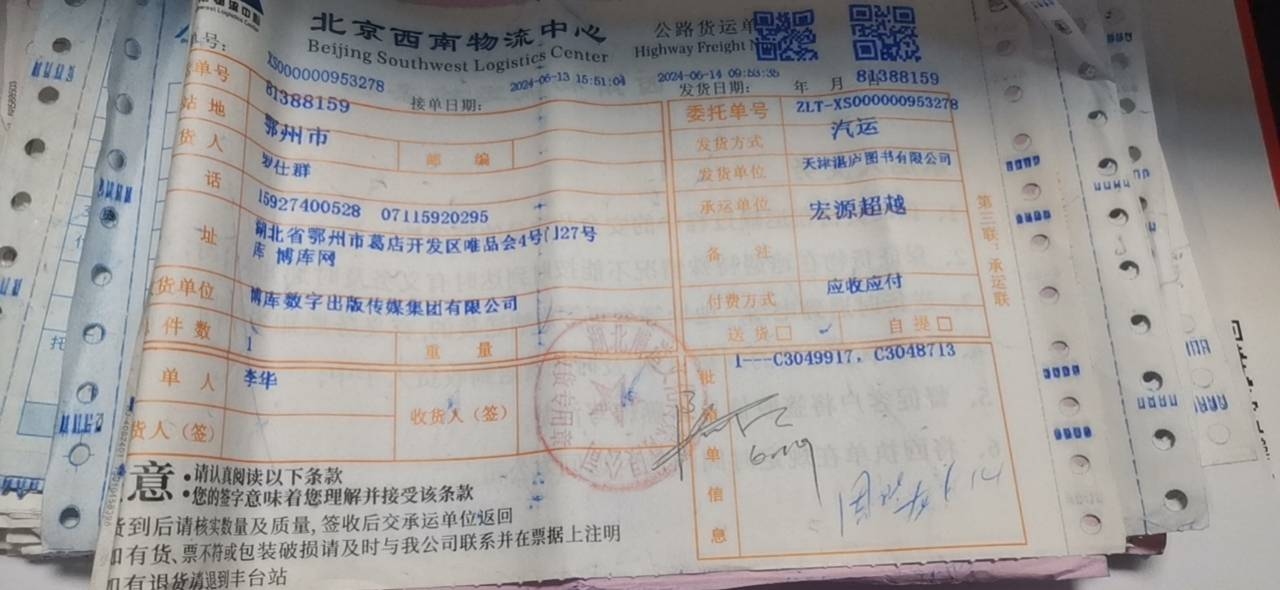 北京西南物流中心
Beijing Southwest Logistics Center
公路货运单
Highway Freight
单号：
XS000000953278
2024-06-13 15:51:04
2024-06-14 09:53:35
接单日期：
发货日期： 年 月
81388159
单号 81388159
委托单号 ZLT-XS000000953278
站 地 鄂州市
邮 编
发货方式 汽运
货 人 罗仕群
发货单位 天津湛庐图书有限公司
话 15927400528 07115920295
承运单位 宏源超越
址 湖北省鄂州市葛店开发区唯品会4号门27号
库 博库网
备 注
货单位 博库数字出版传媒集团有限公司
付费方式 应收应付
件 数 1
重 量
送 货□ 自 提□
单 人 李华
收货人（签）
货人（签）
批 清 单 信 息
1---C3049917, C3048713
第三联：承运联
意 • 请认真阅读以下条款
• 您的签字意味着您理解并接受该条款
货到后请核实数量及质量，签收后交承运单位返回
如有货、票不符或包装破损请及时与我公司联系并在票据上注明
如有退货请退到丰台站